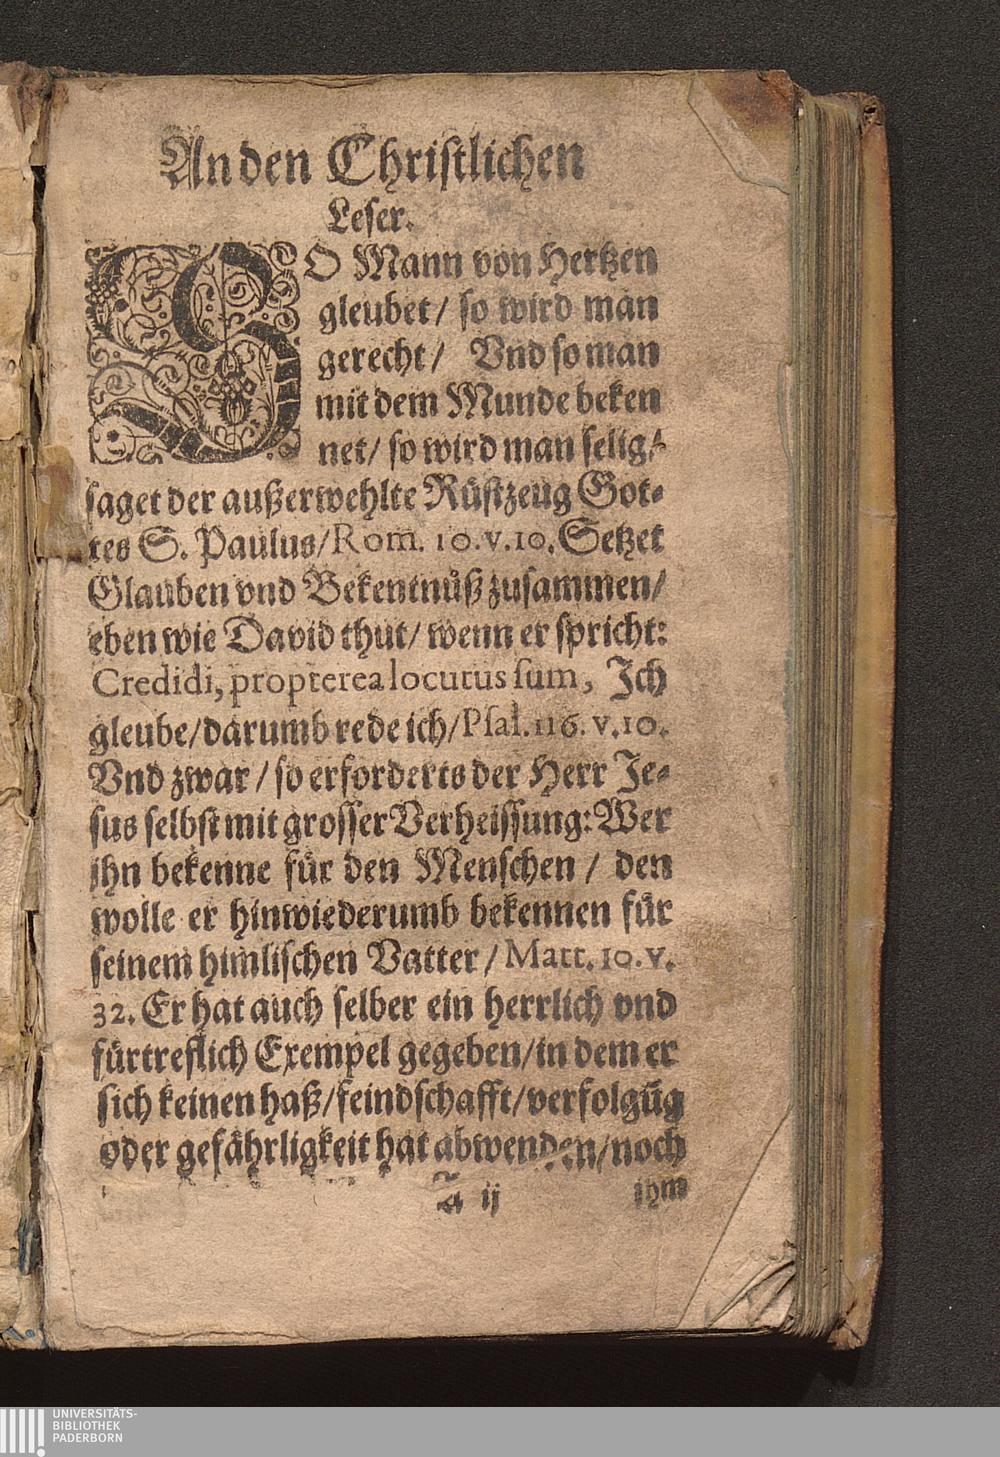 An den Chriſtlichen
Leſer.
SO Mann von Hertzen
gleubet/ ſo wird man
gerecht/ Vnd ſo man
mit dem Munde beken
net/ ſo wird man ſelig/
ſaget der außerwehlte Rüſtzeug Got⸗
tes S. Paulus/Rom. 10.v.10. Setzet
Glauben vnd Bekentnüß zuſammen/
eben wie David thut/ wenn er ſpricht:
Credidi, propterea locutus ſum, Ich
gleube/darumb rede ich/Pſal. 116. v.10.
Vnd zwar / ſo erforderts der Herr Je⸗
ſus ſelbſt mit groſſer Verheiſſung: Wer
ihn bekenne für den Menſchen / den
wolle er hinwiederumb bekennen für
ſeinem himliſchen Vatter / Matt. 10. v.
32. Er hat auch ſelber ein herrlich vnd
fürtreflich Exempel gegeben/in dem er
ſich keinen haß/feindſchafft/verfolgūg
oder gefährligkeit hat abwenden/noch
A ij ihm
UNIVERSITÄTS-
BIBLIOTHEK
PADERBORN